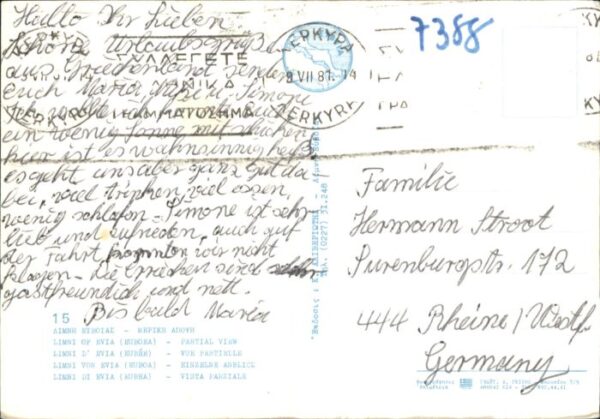 Hallo Ihr Lieben!
Schöne Urlaubsgrüße
aus Griechenland senden
euch Maria Simone
ein wenig Sonne mit
hier ist es wahnsinnig heiß
es geht uns aber ganz gut da
bei, viel trinken, viel essen,
wenig schlafen. Simone ist sehr
lieb und zufrieden, auch auf
der Fahrt konnten wir nicht
klagen. Die Griechen sind sehr
gastfreundlich und nett.
Bis bald Maria
7388
ΚΕΡΚΥΡΑ
8 VII 81. 14
ΚΕΡΚΥΡΑ
ΣΥΛΛΕΓΕΤΕ
ΓΡΑΜΜΑΤΟΣΗΜΑ
Familie
Hermann Stroot
Surenburgstr. 172
444 Rheine / Westf.
Germany
15
ΛΙΜΝΗ ΕΥΒΟΙΑΣ - ΜΕΡΙΚΗ ΑΠΟΨΗ
LIMNI OF EVIA (EUBOEA) - PARTIAL VIEW
LIMNI D' EVIA (EUBÉE) - VUE PARTIELLE
LIMNI VON EVIA (EUBOA) - EINZELNE ANBLICK
LIMNI DI EVIA (EUBEA) - VISTA PARZIALE
ΤΗΛ. (0227) 31.248